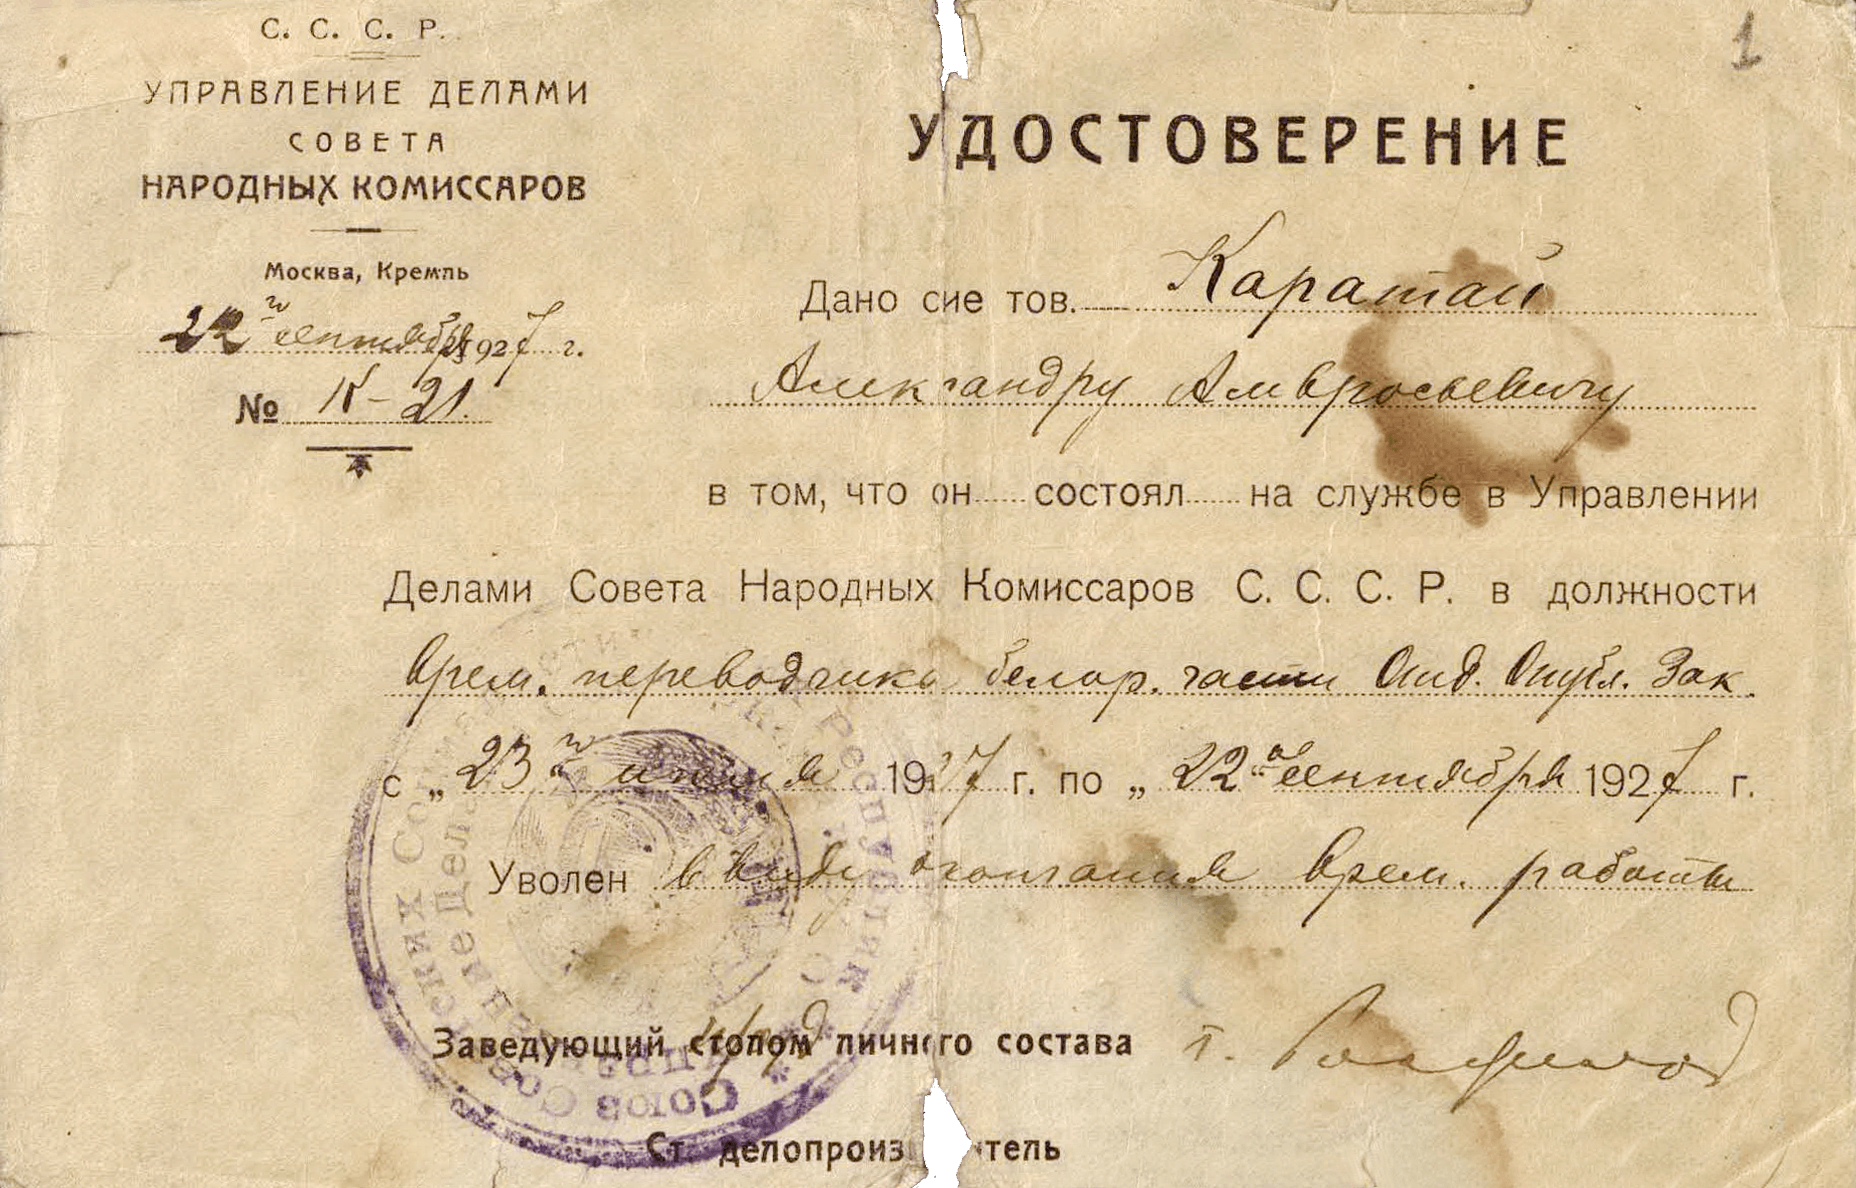 С. С. С. Р.
УПРАВЛЕНИЕ ДЕЛАМИ
СОВЕТА
НАРОДНЫХ КОМИССАРОВ
Москва, Кремль
22го сентября 1927 г.
№ К-21.
1
УДОСТОВЕРЕНИЕ
Дано сие тов. Каратай
Александру Амвросьевичу
в том, что он состоял на службе в Управлении
Делами Совета Народных Комиссаров С. С. С. Р. в должности
Врем. переводчика белор. части Отд. Опубл. Зак.
с „23го июня 1927 г. по „22го сентября 1927 г.
Уволен ввиду окончания врем. работы
Заведующий столом личного состава
Ст. делопроизв тель
Союз Советских Социалистических Республик
Управление Делами